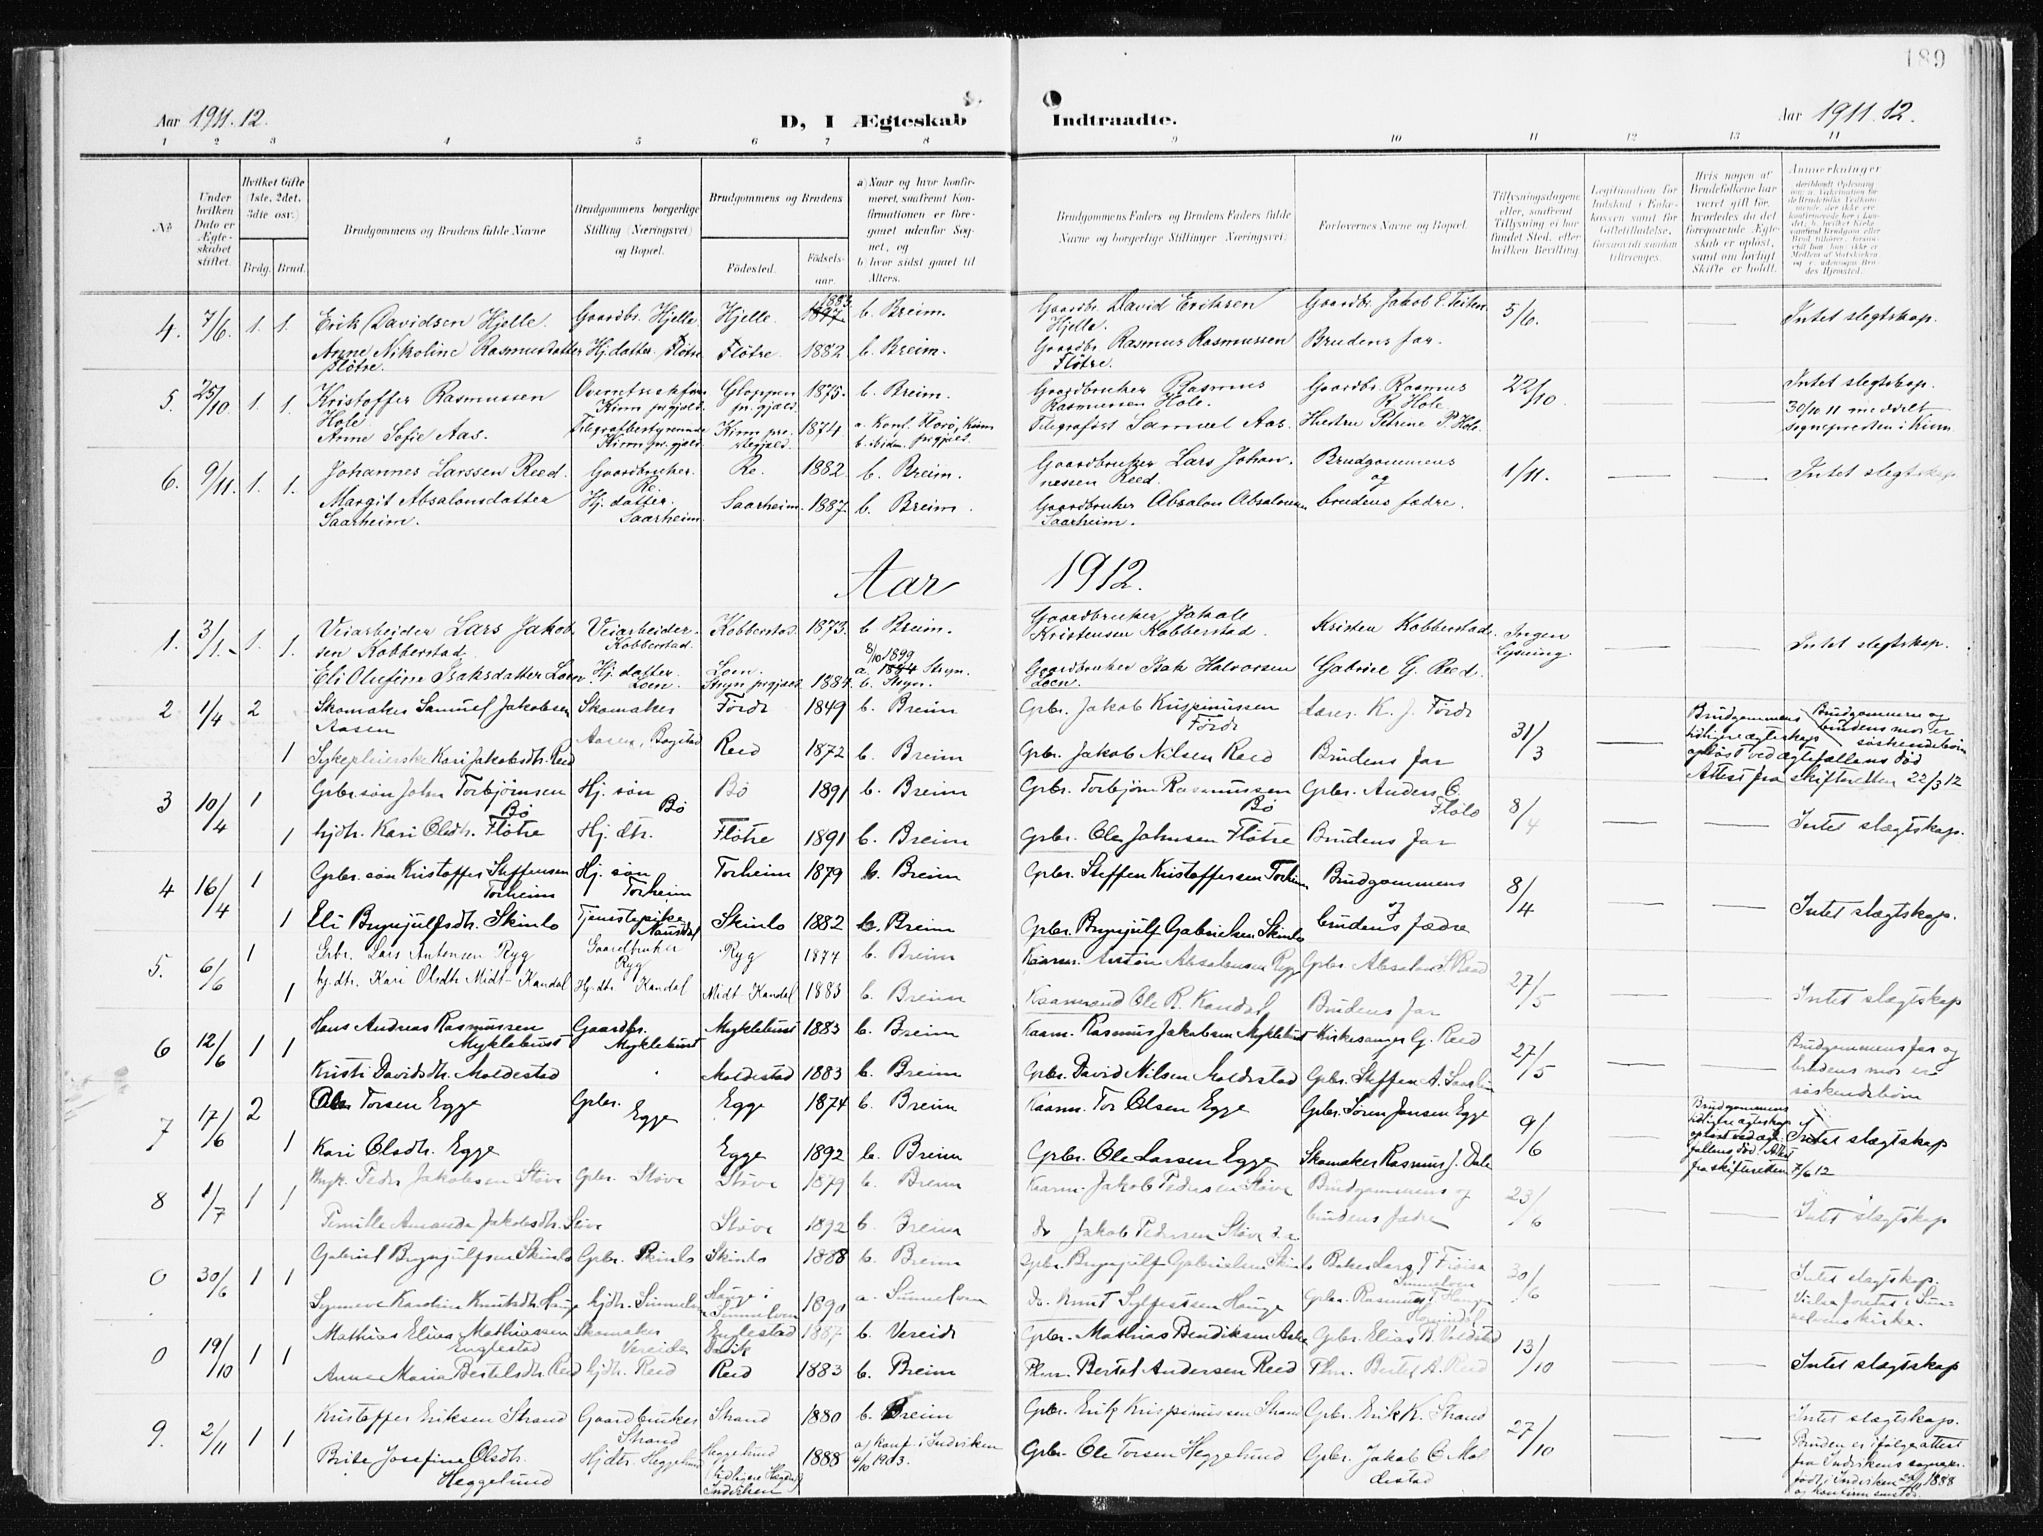 189
Aar 1911. 12.
D, I Ægteskab Indtraadte.
Aar 1911. 12.
1 2 3 4 5 6 7 8 9 10 11 12 13 14
No
Under hvilken Dato er Ægteskabet stiftet.
Hvilket Gifte (1ste, 2det, 3die osv.)
Brdg. Brud.
Brudgommens og Brudens fulde Navne
Brudgommens borgerlige Stilling (Næringsvei) og Bopæl.
Brudgommens og Brudens
Fødested. Fødselsaar.
a) Naar og hvor konfirmeret, saafremt Konfirmationen er foregaaet udenfor Sognet, og
b) hvor sidst gaaet til Alters.
Brudgommens Faders og Brudens Faders fulde Navne og borgerlige Stillinger (Næringsvei)
Forlovernes Navne og Bopæl.
Tillysningsdagene eller, saafremt Tillysning ei har fundet Sted, efter hvilken Bevilling
Legitimation for Indskud i Enkekassen samt for Giftetilladelse, forsaavidt saadan tiltrænges.
Hvis nogen af Brudefolkene har været gift før, hvorledes da det foregaaende Ægteskab er opløst, samt om lovligt Skifte er holdt.
Anmerkninger
4. 7/6. 1. 1. Erik Davidsen Hjelle. Gaardbr. Hjelle. Hjelle. 1883. b. Breim. Gaardbr. David Eriksen Hjelle. Gaardbr. Jakob E. 5/6. Intet slegtskap.
Anne Nikoline Rasmusdatter Fløtre. Hj.datter Fløtre Fløtre. 1882 b. Breim. Gaardbr. Rasmus Rasmussen Fløtre. Brudens far.
5. 25/10. 1. 1. Kristoffer Rasmussen Hole Kinn pr.gjæld. Gloppen pr.gjæld. 1875. b. Breim. Gaardbruker Rasmus Rasmussen Hole. Gaardbr. Rasmus R. Hole 22/10 Intet slegtskap.
Anne Sofie Aas. Telegrafbestyrerinde Kinn pr.gjæld. Kinn prestegjæld. 1874 a. Konf. Florø, Kinn b. ibidm. pr.gjeld. Telegrafist Samuel Aas. Petrine P. Hole. 30/10 11 meddelt sognepresten i Kinn
6. 9/11. 1. 1. Johannes Larssen Reed. Gaardbruker. Re. Re. 1882 b. Breim. Gaardbruker Lars Johannessen Reed. Brudgommens og 1/11. Intet slegtskap.
Margit Absalonsdatter Saarheim. Hj.datter. Saarheim. Saarheim. 1887. b. Breim. Gaardbruker Absalon Absalonsen Saarheim. brudens fædre.
Aar 1912.
1. 3/1. 1. 1. Veiarbeider Lars Jakobsen Kobberstad. Veiarbeider. Kobberstad. Kobberstad. 1873. b. Breim. Gaardbruker Kristensen Kobberstad. Kristen Kobberstad. Ingen Lysning. Intet slegtskap.
Eli Olufine Isaksdatter Loen. Hj.datter. Loen. Loen. Stryn pr.gjæld. 1884. 8/10 1899 a. Stryn. b. Stryn. Gaardbruker Isak Halvorsen Loen. Gabriel G. Reed.
2 1/4 2 Skomaker Samuel Jakobsen Aasen Skomaker Aasen, Bogstad Førde 1849 b. Breim Grbr. Jakob Krispinussen Førde K. J. Førde 31/3 Brudgommens tidligere ægteskap opløst ved ægtefællens død Attest fra skifteretten 22/3 12 Brudgommen og brudens mor er søskendebörn
1 Sykepleierske Kari Jakobsdtr. Reed Reed 1872 b. Breim Grbr. Jakob Nilsen Reed Brudens far
3 10/4 1 Grbr.søn John Torbjørnsen Bø Hj. søn Bø Bø 1891 b. Breim Grbr. Torbjørn Rasmussen Bø Grbr. Anders O. Fløto 8/4 Intet slægtskap.
1 hjdtr. Kari Olsdtr. Fløtre Hj. dtr. Fløtre 1891 b. Breim Grbr. Ole Johnsen Fløtre Brudens far
4 16/4 1 Grbr.søn Kristoffer Steffensen Torheim Hj. søn Torheim Torheim 1879 b. Breim Grbr. Steffen Kristoffersen Torheim Brudgommens 8/4 Intet slægtskap.
1 Eli Brynjulfsdtr. Skinlo Tjenestepike Naustdal Skinlo 1882 b. Breim Grbr. Brynjulf Gabrielsen Skinlo og brudens fædre
5. 6/6 1 Grbr. Lars Antonsen Ryg Gaardbruker Ryg Ryg 1877 b. Breim Kaarm. Anton Absalonsen Ryg Grbr. Absalon S. Reed 27/5 Intet slægtskap
1 hj.dtr. Kari Olsdtr Midt-Kandal Hj.dtr Kandal Midt-Kandal 1883 b. Breim Kaarmand Ole R. Kandal Brudens far
6 12/6 1 1 Hans Andreas Rasmussen Myklebust Gaardbr. Myklebust Myklebust 1883 b. Breim Kaarm. Rasmus Jakobsen Myklebust Kirkesanger G. Reed 27/5 Brudgommens far og brudens mor er søskendebörn
Kristi Davidsdtr. Moldestad Moldestad 1883 b. Breim Grbr. David Nilsen Moldestad Grbr. Steffen A. Saarheim
7 17/6 2 Ole Torsen Egge Grbr. Egge Egge 1874 b. Breim Kaarm. Tor Olsen Egge Grbr. Søren Jensen Egge 9/6 Brudgommens tidligere ægteskap opløst ved ægtefællens død. Attest fra skifteretten 7/6 12 Intet slægtskap
1 Kari Olsdtr. Egge Egge 1892 b. Breim Grbr. Ole Larsen Egge Skomaker Rasmus J. Dale
8 1/7 1 1 Peder Jakobsen Støve Grbr. Støve Støve 1879 b. Breim Kaarm. Jakob Pedersen Støve Brudgommens og 23/6 Intet slægtskap
Pernille Amanda Jakobsdtr. Støve Støve 1892 b. Breim Jakob Pedersen Støve brudens fædre
0 30/6 1 1 Gabriel Brynjulfsen Skinlo Grbr. Skinlo Skinlo 1888 b. Breim Grbr. Brynjulf Gabrielsen Skinlo Baker Lars Sunnelven 30/6 Intet slægtskap.
Synneve Karoline Knutsdtr. Hauge hjdtr. Sunnelven Hauge i Sunnelven 1890 a. Sunnelven Knut Sylfestsen Hauge Grbr. Rasmus Vielse foretat i Sunnelvens kirke.
0 19/10 1 1 Mathias Elias Mathiassen Englestad Skomaker Vereide Englestad Davik 1887 b. Vereide Grbr. Mathias Bendiksen Grbr. Elias B. 13/10 Intet slægtskap
Anne Maria Bertelsdtr. Reed hjdtr. Reed Reed 1883 b. Breim Bertel Andersen Reed Bertel A. Reed
9. 2/11 1 1 Kristoffer Eriksen Strand Gaardbruker Strand Strand 1880 b. Breim Grbr. Erik Krispinussen Strand Grbr. Erik K. Strand 27/10 Intet slægtskap.
Brite Josefine Olsdtr. Heggelund Hjdtr. Heggelund Heggelund (tidligere Indviken 1888 a) Konf. i Indviken 4/10 1903. Grbr. Ole Torsen Heggelund Grbr. Jakob O. Moldestad Bruden er ifølge attest fra Indvikens sogneprest født i Indviken 1888 og